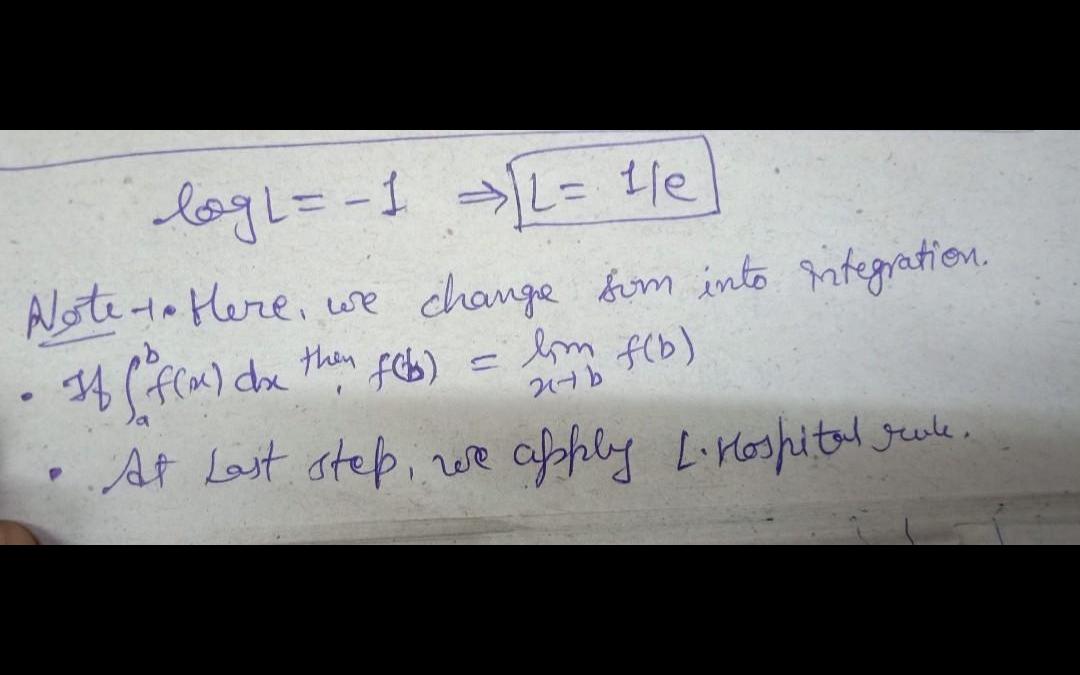 log L = -1 ⇒ L = 1/e
Note → • Here, we change sum into integration.
• If ∫_a^b f(x) dx then, f(b) = lim_{x→b} f(b)
• At Last step, we apply L.Hospital rule.